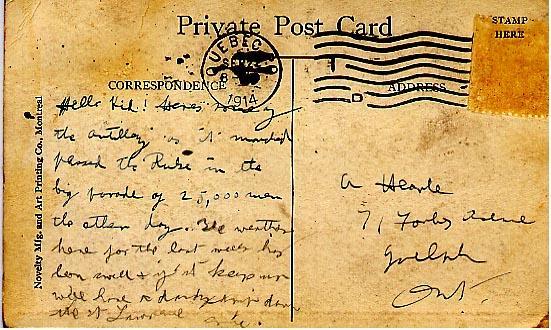 Private Post Card
STAMP
HERE
QUEBEC
SEP
8
1914
CORRESPONDENCE
ADDRESS
Novelty Mfg. and Art Printing Co., Montreal
Hello Kid! Heres some of
the artillery as it marched
passed the Duke in the
big parade of 25,000 men
the other day. The weather
here for the last week has
been swell & if it keeps up
will have a dandy trip down
the St Lawrence
A Hearle
71 Forbes Avenue
Guelph
Ont.